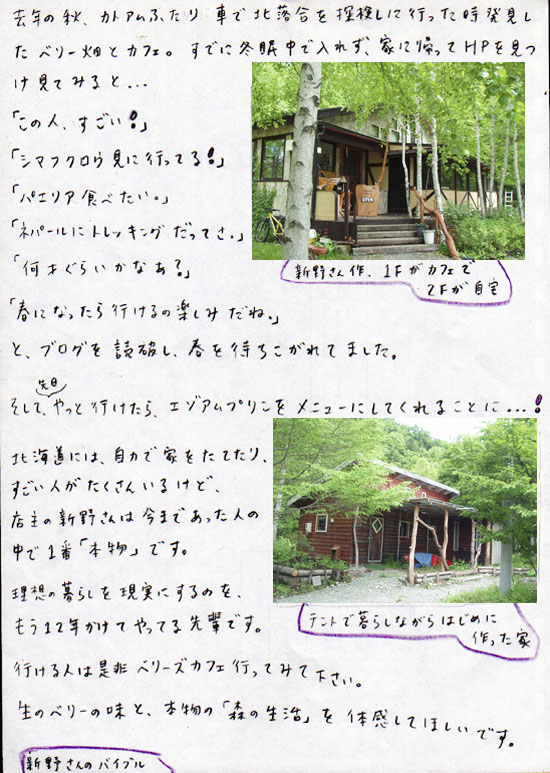 去年の秋、カトアムふたり 車で北落合を探検しに行った時発見し
たベリー畑とカフェ。すでに冬眠中で入れず、家に帰ってHPを見つ
け見てみると...
「この人、すごい!」
「シマフクロウ見に行ってる!」
「パエリア食べたい。」
「ネパールにトレッキングだってさ。」
「何才ぐらいかなあ?」
OPEN
新野さん作、1Fがカフェで
2Fが自宅
「春になったら行けるの楽しみだね。」
と、ブログを読破し、春を待ちこがれてました。
先日
そして、やっと行けたら、エゾアムプリンをメニューにしてくれることに...!
北海道には、自力で家をたてたり、
すごい人がたくさんいるけど、
店主の新野さんは今まであった人の
中で1番「本物」です。
理想の暮らしを現実にするのを、
もう12年かけてやってる先輩です。
テントで暮らしながらはじめに
作った家
行ける人は是非ベリーズカフェ行ってみて下さい。
生のベリーの味と、本物の「森の生活」を体感してほしいです。
新野さんのバイブル